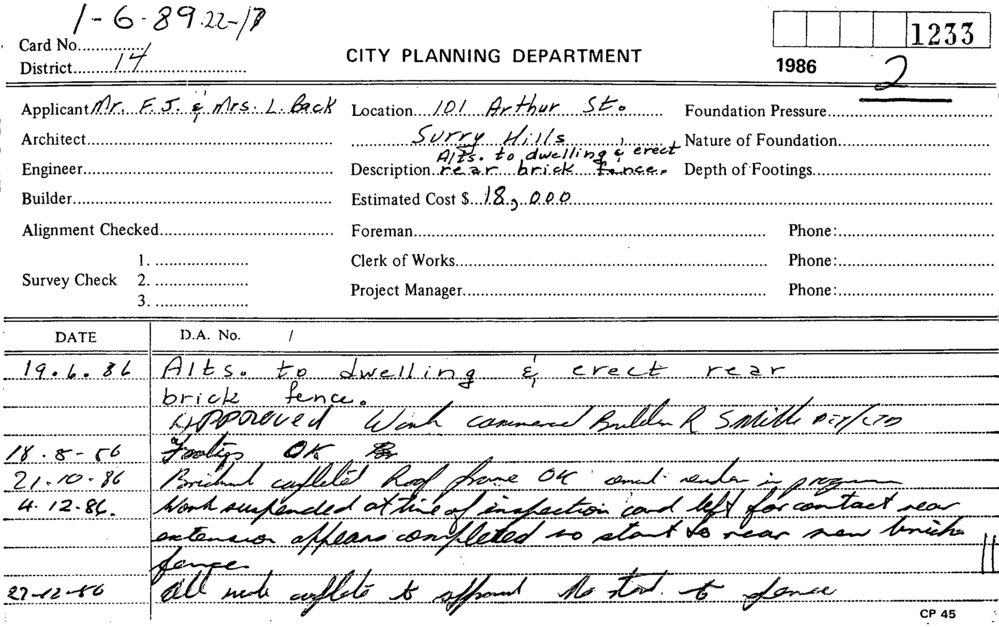 1-6-89 22-17
Card No.
District 14
CITY PLANNING DEPARTMENT
1233
1986 2
Applicant Mr. F.J. & Mrs. L. Back Location 101 Arthur St. Foundation Pressure
Architect Surry Hills Nature of Foundation
Alts. to dwelling & erect
Engineer Description rear brick fence. Depth of Footings
Builder Estimated Cost $ 18,000
Alignment Checked Foreman Phone:
1. Clerk of Works Phone:
Survey Check 2.
Project Manager Phone:
3.
DATE D.A. No. /
19.6.86 Alts. to dwelling & erect rear
brick fence.
APPROVED Work commenced Builder R Smith PTY/LTD
18-8-86 Footings OK
21-10-86 Brickwork complete Roof frame OK render in progress
4.12.86. Work suspended at time of inspection card left for contact rear
extension appears completed no start to rear new brick
fence
27-12-86 All work complete to approval No start to fence
CP 45